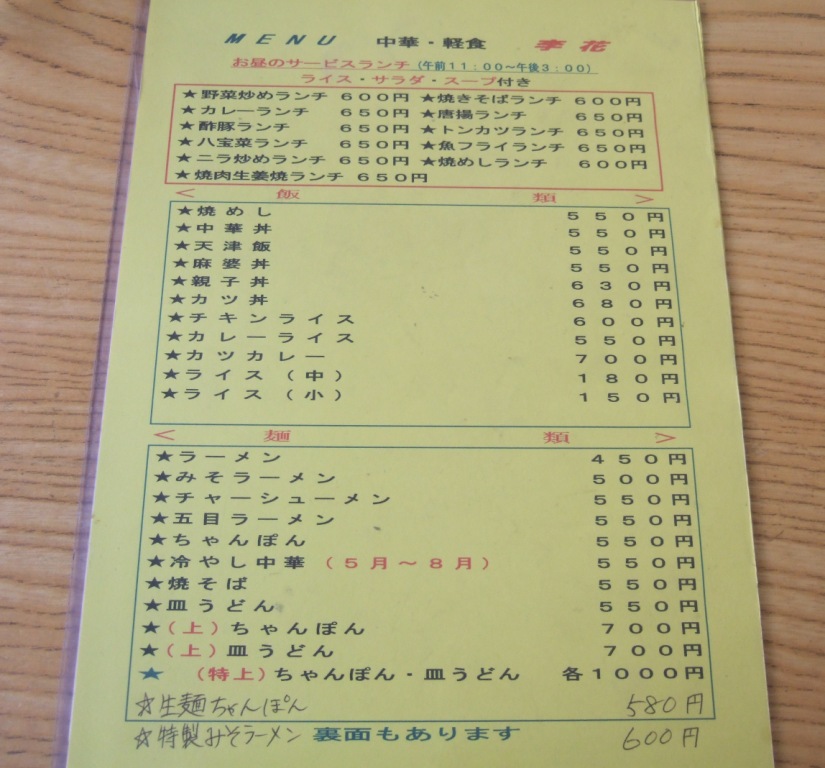 MENU 中華・軽食 李花
お昼のサービスランチ(午前11:00~午後3:00)
ライス・サラダ・スープ付き
★野菜炒めランチ 600円 ★焼きそばランチ 600円
★カレーランチ 650円 ★唐揚ランチ 650円
★酢豚ランチ 650円 ★トンカツランチ 650円
★八宝菜ランチ 650円 ★魚フライランチ 650円
★ニラ炒めランチ 650円 ★焼めしランチ 600円
★焼肉生姜焼ランチ 650円
< 飯 類 >
★焼めし 550円
★中華丼 550円
★天津飯 550円
★麻婆丼 550円
★親子丼 630円
★カツ丼 680円
★チキンライス 600円
★カレーライス 550円
★カツカレー 700円
★ライス(中) 180円
★ライス(小) 150円
< 麺 類 >
★ラーメン 450円
★みそラーメン 500円
★チャーシューメン 550円
★五目ラーメン 550円
★ちゃんぽん 550円
★冷やし中華(5月~8月) 550円
★焼そば 550円
★皿うどん 550円
★(上)ちゃんぽん 700円
★(上)皿うどん 700円
★ (特上)ちゃんぽん・皿うどん 各1000円
☆生麺ちゃんぽん 580円
☆特製みそラーメン 裏面もあります 600円